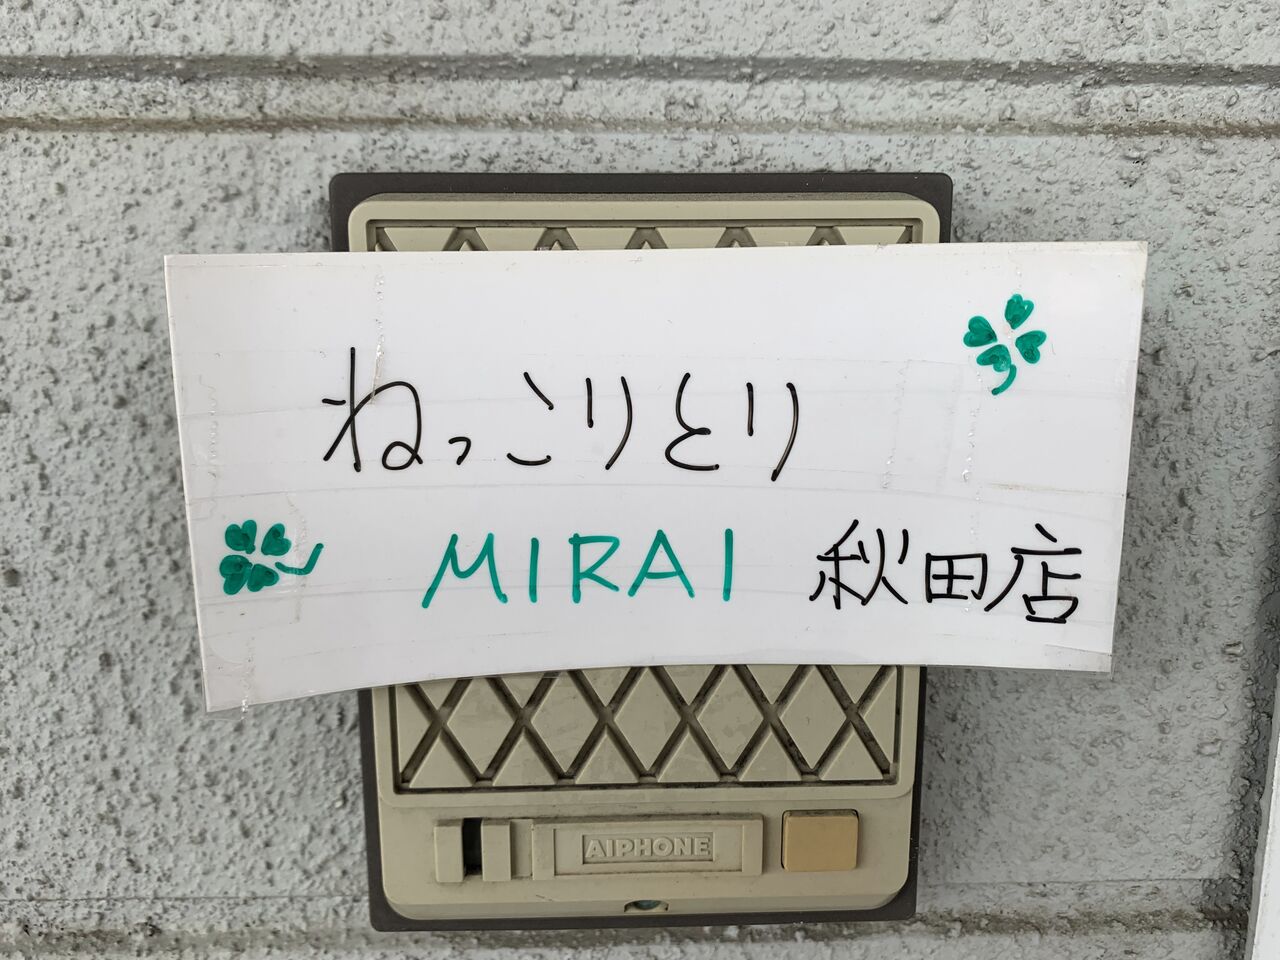 ねっこりとり
MIRAI 秋田店
AIPHONE